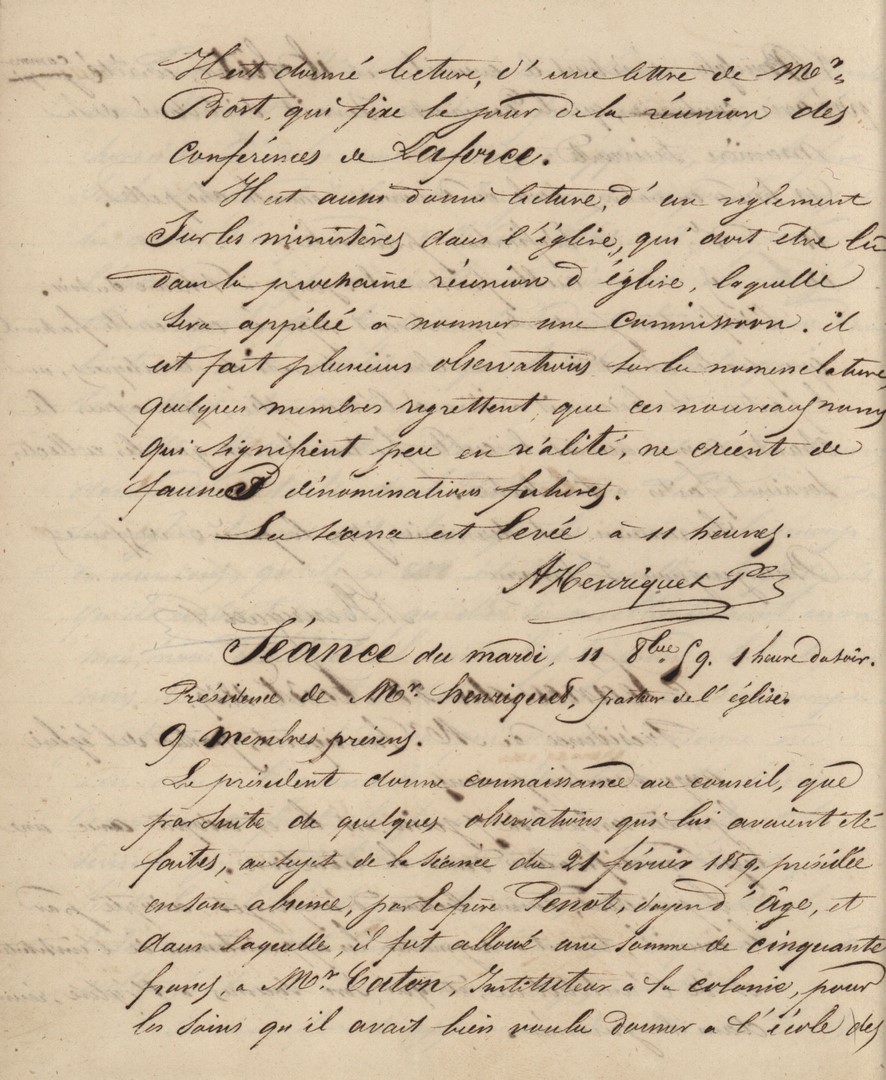 Il est donné lecture, d'une lettre de Mr
Bost, qui fixe le jour de la réunion des
conférences de Laforce.
Il est aussi donné lecture, d'un règlement
sur les ministères dans l'église, qui doit être lû
dans la prochaine réunion d'église, laquelle
sera appélée à nommer une commission. il
est fait plusieurs observations sur la nomenclature,
quelques membres regrettent, que ces nouveaux noms
qui signifient peu en réalité, ne créent de
fausses dénominations futures.
La séance est levée à 11 heures.
AHenriquet Pr
Séance du mardi, 11 8bre 59. 1 heure du soir.
Présidence de Mr. henriquet, pasteur de l'église.
9 membres présens.
Le président donne connaissance au conseil, que
par suite de quelques observations qui lui avaient été
faites, au sujet de la séance du 21 février 1859. présidée
en son absence, par le frère Penot, doyen d'âge, et
dans laquelle, il fût alloué une somme de cinquante
francs, a Mr Caton, Instituteur a la colonie, pour
les soins qu'il avait bien voulu donner a l'école des